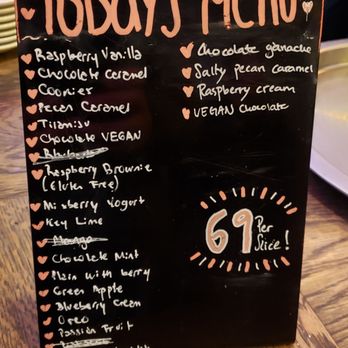 TODAYS MENU
Raspberry Vanilla
Chocolate Caramel
Cookies
Pecan Caramel
Tiramisu
Chocolate VEGAN
Rhubarb
Raspberry Brownie
(Gluten Free)
Mixberry Yogort
Key Lime
Mango
Chocolate Mint
Plain with berry
Green Apple
Blueberry Cream
Oreo
Passion Fruit
Chocolate ganache
Salty pecan caramel
Raspberry cream
VEGAN Chocolate
69 Per
Slice!